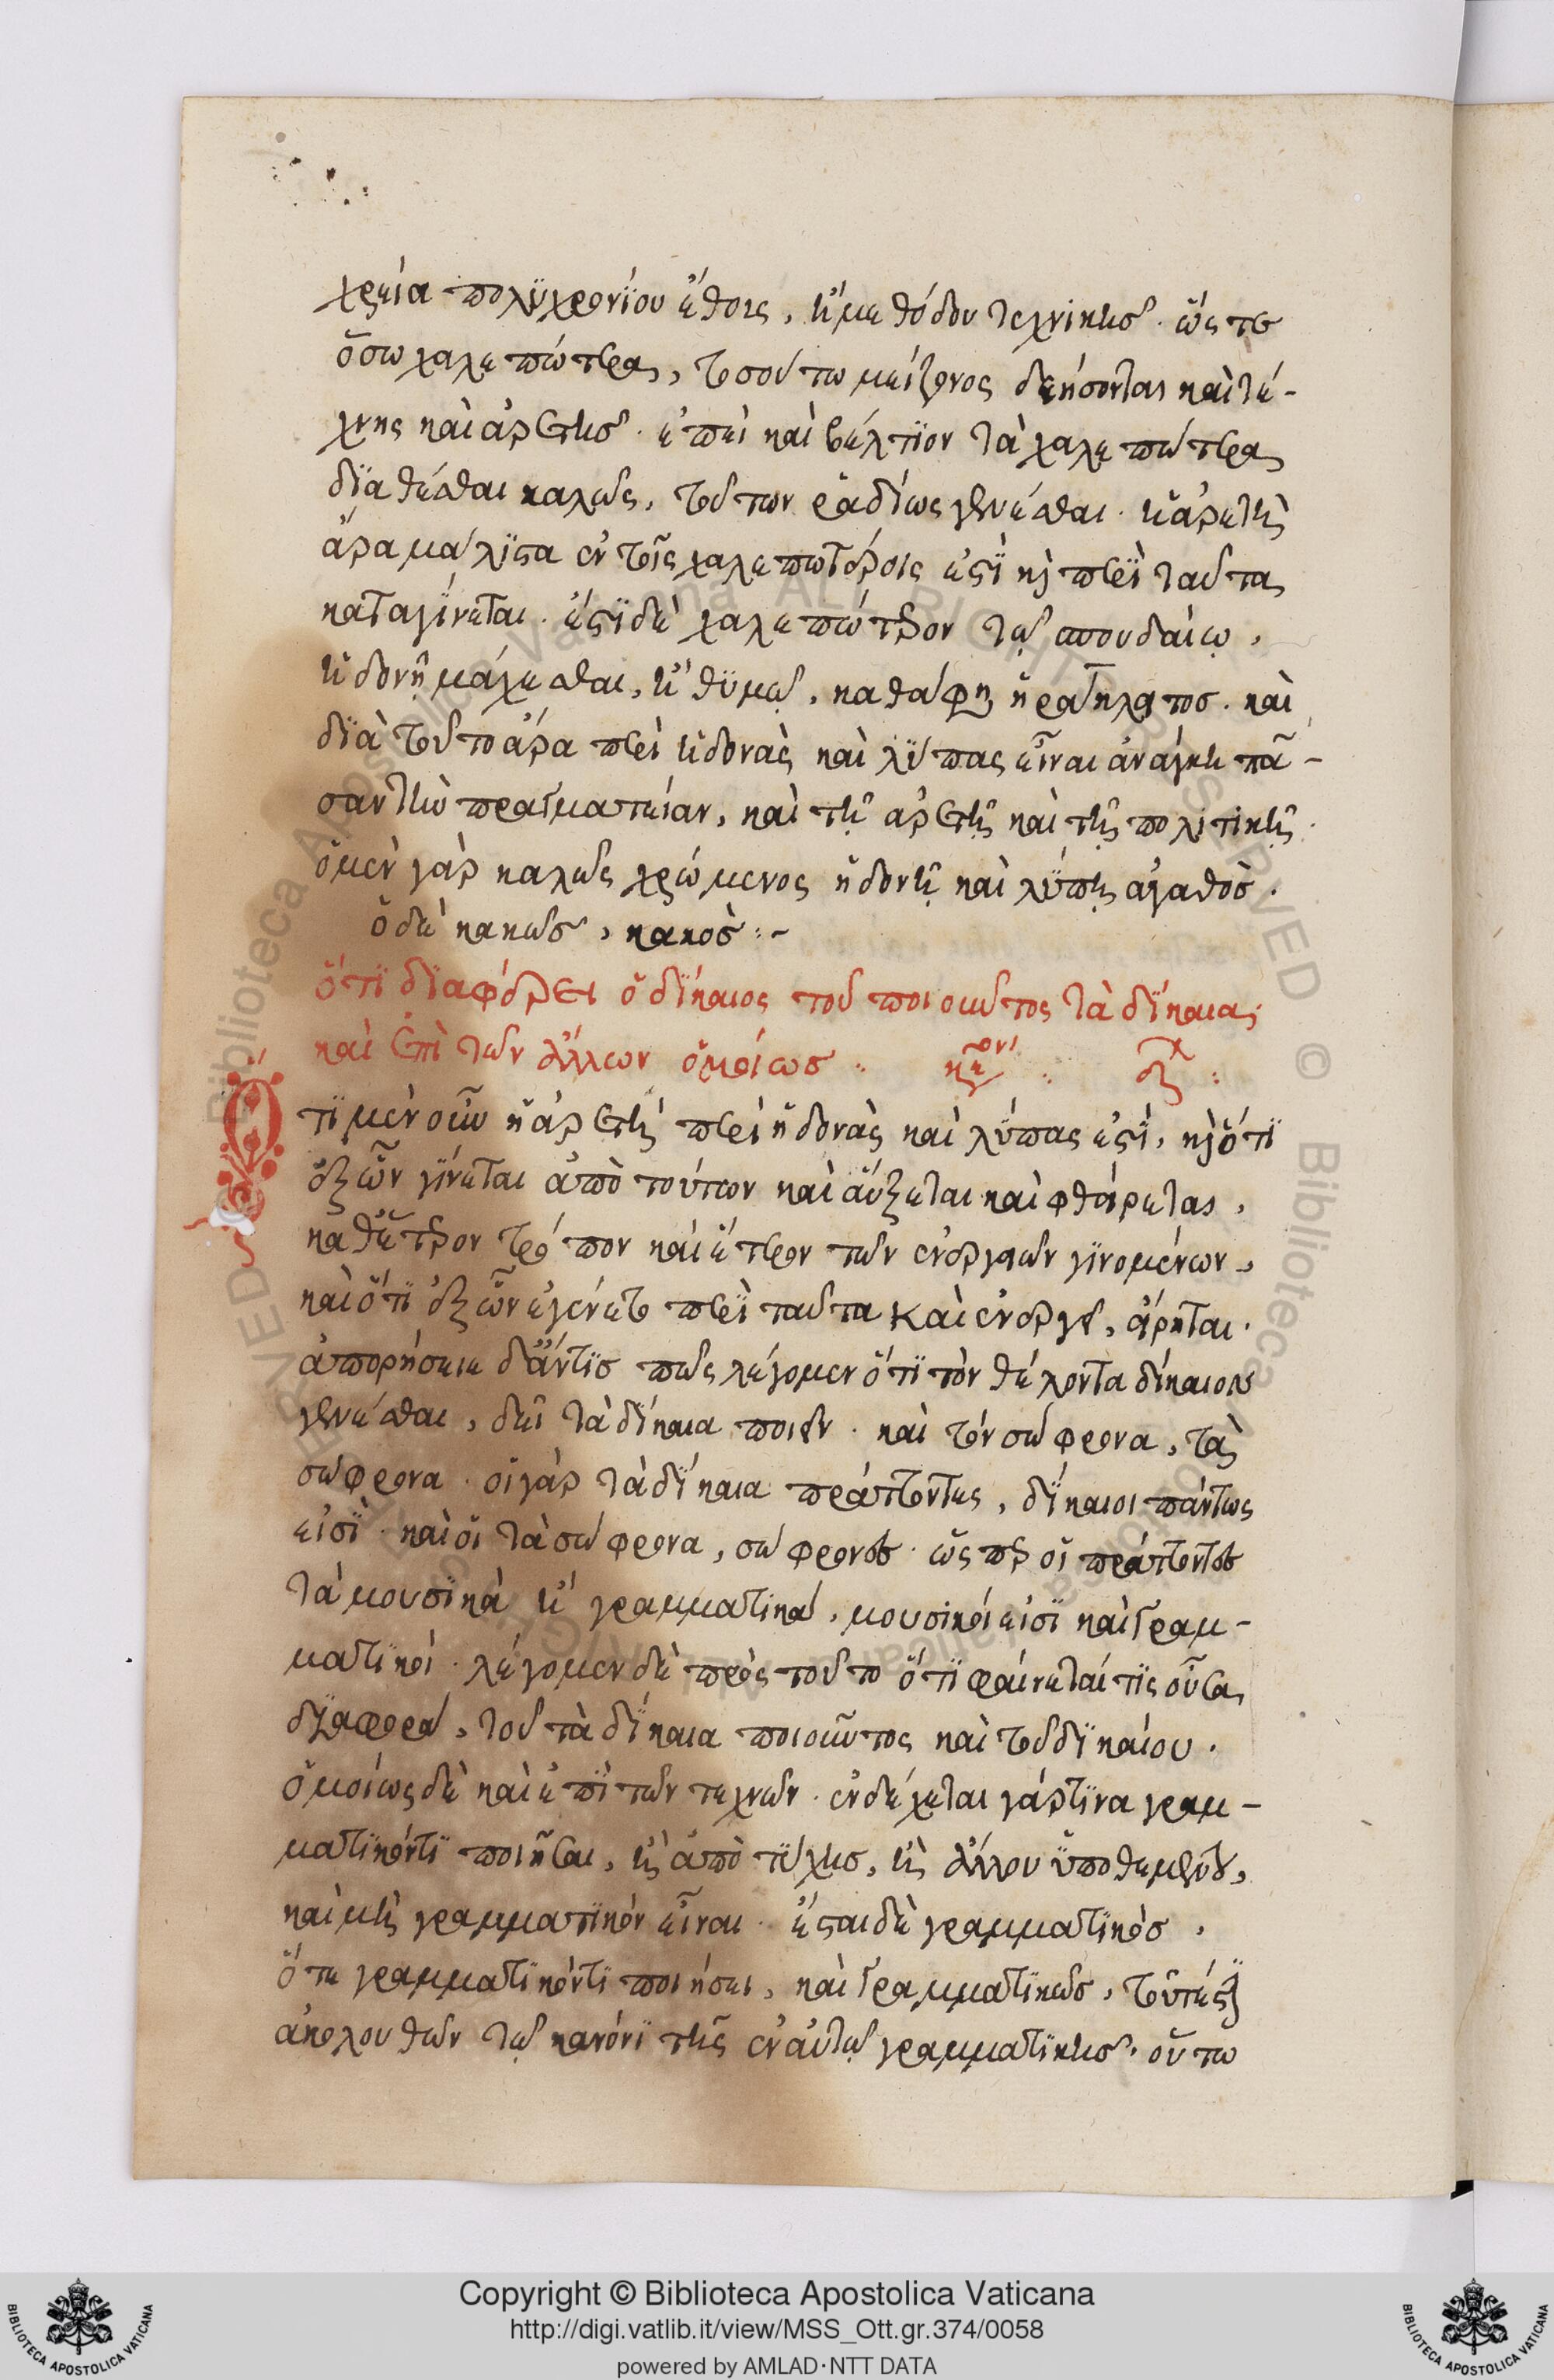 χρεία πολυχρονίου ἔθους, ἢ μεθόδου τεχνικῆς· ὥστε
ὅσω χαλεπώτερα, τοσούτω μείζονος δεήσονται καὶ τέ-
χνης καὶ ἀρετῆς· ἐπεὶ καὶ βέλτιον τὰ χαλεπώτερα
διαθέσθαι καλῶς, τούτων ῥαδίως γενέσθαι· ἡ ἀρετὴ
ἄρα μάλιστα ἐν τοῖς χαλεπωτέροις ἐστὶ καὶ περὶ ταῦτα
καταγίνεται· ἔστι δὲ χαλεπώτερον τῷ σπουδαίῳ,
ἡδονῇ μάχεσθαι, ἢ θυμῷ, καθά φη ἡράκλειτος· καὶ
διὰ τοῦτο ἄρα περὶ ἡδονὰς καὶ λύπας εἶναι ἀνάγκη πᾶ-
σαν τὴν πραγματείαν, καὶ τῇ ἀρετῇ καὶ τῇ πολιτικῇ·
ὁ μὲν γὰρ καλῶς χρώμενος ἡδονῇ καὶ λύπῃ ἀγαθός·
ὁ δὲ κακῶς, κακός:-
ὅτι διαφέρει ὁ δίκαιος τοῦ ποιοῦντος τὰ δίκαια,
καὶ ἐπὶ τῶν ἄλλων ὁμοίως:
Ὅτι μὲν οὖν ἡ ἀρετὴ περὶ ἡδονὰς καὶ λύπας ἐστί, καὶ ὅτι
ἐξ ὧν γίνεται ἀπὸ τούτων καὶ αὔξεται καὶ φθείρεται,
καθ' ἕτερον τρόπον καὶ ἕτερον τῶν ἐνεργειῶν γινομένων,
καὶ ὅτι ἐξ ὧν ἐγένετο περὶ ταῦτα καὶ ἐνεργεῖ, εἴρηται·
ἀπορήσειε δ' ἄν τις πῶς λέγομεν ὅτι τὸν θέλοντα δίκαιον
γενέσθαι, δεῖ τὰ δίκαια ποιεῖν· καὶ τὸν σώφρονα, τὰ
σώφρονα· οἱ γὰρ τὰ δίκαια πράττοντες, δίκαιοι πάντως
εἰσὶ· καὶ οἱ τὰ σώφρονα, σώφρονες· ὥσπερ οἱ πράττοντες
τὰ μουσικὰ ἢ γραμματικά, μουσικοί εἰσι καὶ γραμ-
ματικοί· λέγομεν δὲ πρὸς τοῦτο ὅτι φαίνεταί τις οὖσα
διαφορά, τοῦ τὰ δίκαια ποιοῦντος καὶ τοῦ δικαίου·
ὁμοίως δὲ καὶ ἐπὶ τῶν τεχνῶν· ἐνδέχεται γάρ τινα γραμ-
ματικόν τι ποιῆσαι, ἢ ἀπὸ τύχης, ἢ ἄλλου ὑποθεμένου,
καὶ μὴ γραμματικὸν εἶναι· ἔσται δὲ γραμματικός,
ὅτε γραμματικόν τι ποιήσει, καὶ γραμματικῶς, τοῦτέστι
ἀκολουθῶν τῷ κανόνι τῆς ἐν αὐτῷ γραμματικῆς· οὕτω
Copyright © Biblioteca Apostolica Vaticana
http://digi.vatlib.it/view/MSS_Ott.gr.374/0058
powered by AMLAD·NTT DATA